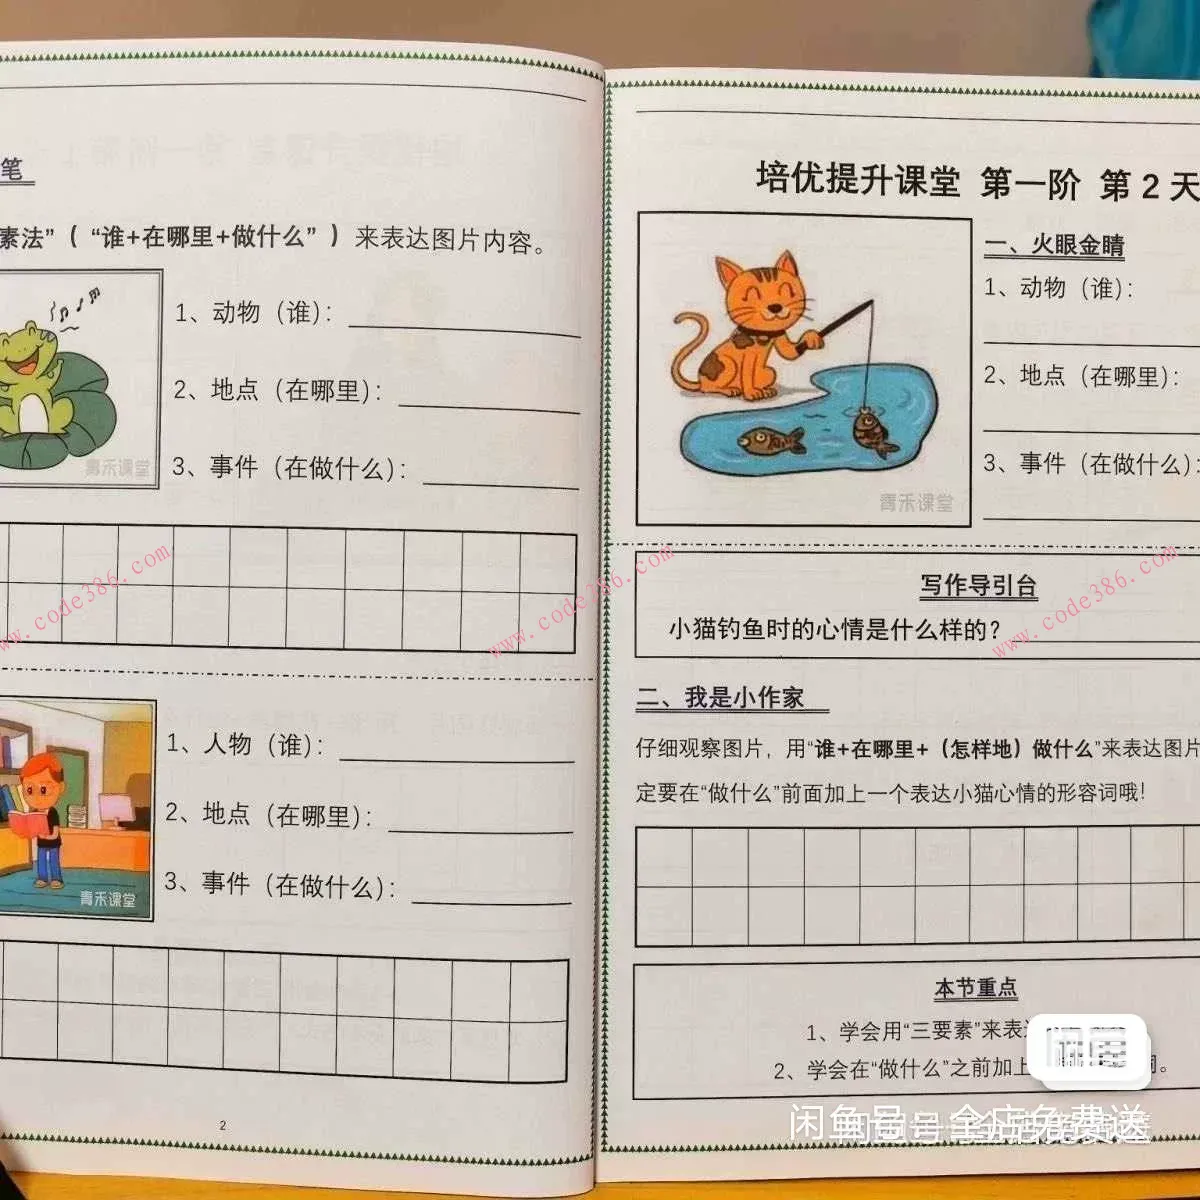 笔
素法”（“谁+在哪里+做什么”）来表达图片内容。
1、动物（谁）：
2、地点（在哪里）：
3、事件（在做什么）：
青禾课堂
1、人物（谁）：
2、地点（在哪里）：
3、事件（在做什么）：
青禾课堂
2
培优提升课堂 第一阶 第2天
一、火眼金睛
1、动物（谁）：
2、地点（在哪里）：
3、事件（在做什么）：
青禾课堂
写作导引台
小猫钓鱼时的心情是什么样的？
二、我是小作家
仔细观察图片，用“谁+在哪里+（怎样地）做什么”来表达图片
定要在“做什么”前面加上一个表达小猫心情的形容词哦！
本节重点
1、学会用“三要素”来表
2、学会在“做什么”之前加上
www.code386.com
www.code386.com
www.code386.com
闲鱼号
全店免费送